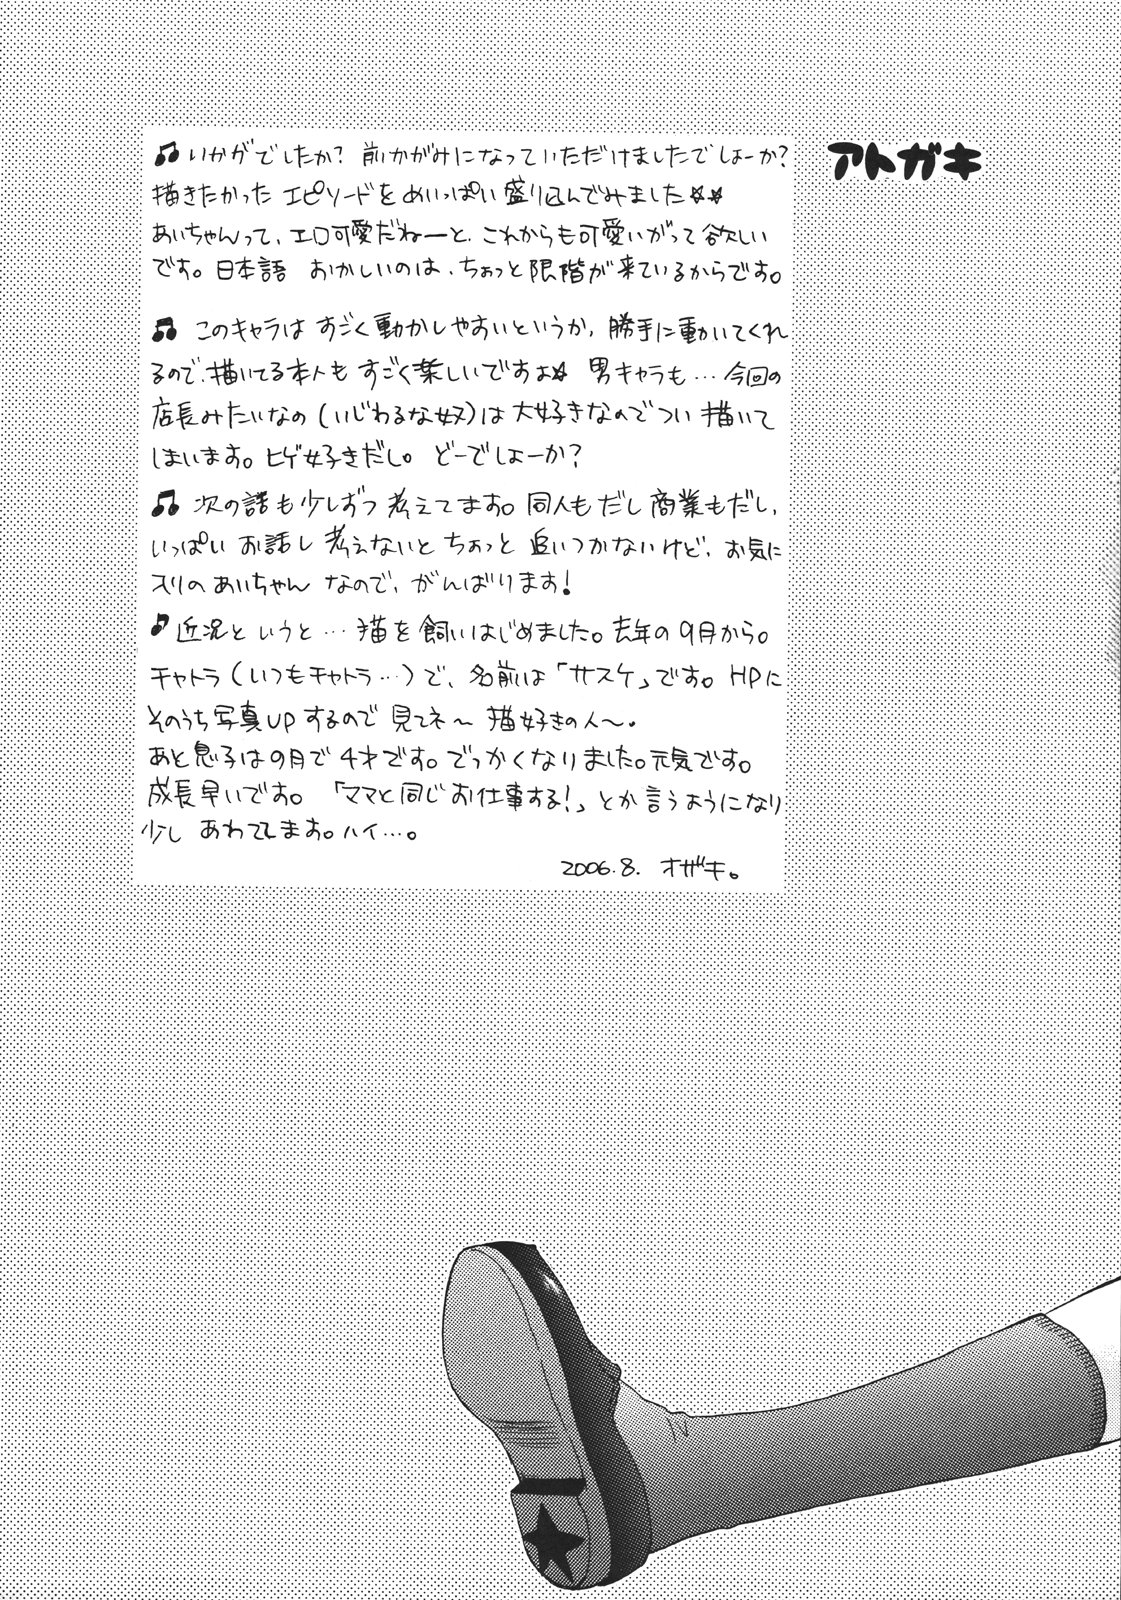 アトガキ
♫ いかがでしたか? 前かがみになっていただけましたでしょーか?
描きたかった エピソードをめいっぱい盛り込んでみました☆☆
あいちゃんって、エロ可愛だねーと、これからも可愛いがって欲しい
です。日本語 おかしいのは、ちょっと限階が来ているからです。
♫ このキャラは すごく動かしやすいというか、勝手に動いてくれ
るので、描いてる本人も すごく楽しいですよ☆ 男キャラも…今回の
店長みたいなの(いじわるな奴)は大好きなのでつい描いて
しまいます。ヒゲ好きだし。どーでしょーか?
♫ 次の話も少しずつ考えてます。同人もだし商業もだし、
いっぱい お話し 考えないと ちょっと 追いつかないけど、お気に
入りの あいちゃん なので、がんばります!
♪ 近況と いうと…猫を飼いはじめました。去年の9月から。
チャトラ(いつもチャトラ…)で、名前は「サスケ」です。HPに
そのうち写真UPするので 見てネ〜 猫好きの人〜。
あと息子は9月で4才です。でっかくなりました。元気です。
成長早いです。「ママと同じお仕事する!」とか言うようになり
少し あわててます。ハイ…。
2006.8. オザキ。